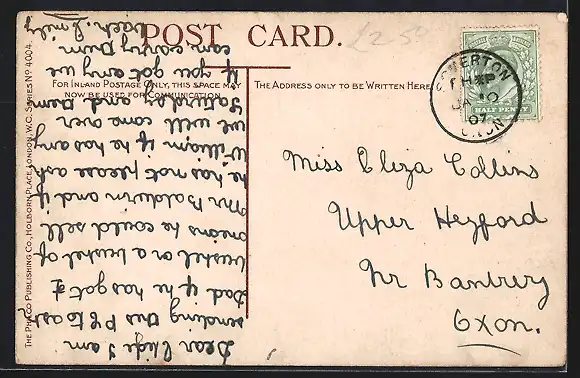 POST CARD.
£2.50
FOR INLAND POSTAGE ONLY, THIS SPACE MAY
NOW BE USED FOR COMMUNICATION.
THE ADDRESS ONLY TO BE WRITTEN HERE
HALF PENNY
SOMERTON
JA 10
07
OXON
Miss Eliza Collins
Upper Heyford
Nr Banbury
Oxon.
Dear Elize I am
sending this PC to ask
Dad if he has got a
bushel or a bushel of
onions he could sell
Mr Baldwin and if
he has not please ask
William if he has any
we will come over
Saturday and
if you got any we
can carry
each.
THE PHOCO PUBLISHING CO., HOLBORN PLACE, LONDON, W.C. SERIES NO 4004.